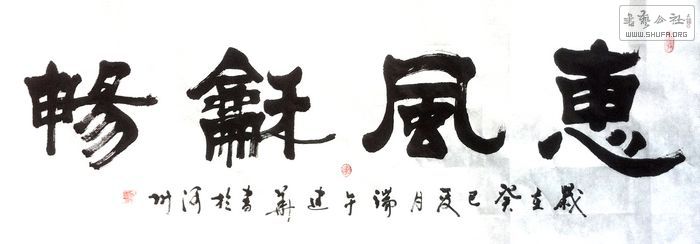 書藝公社
WWW.SHUFA.ORG
惠風龢暢
歲在癸巳夏月端午建華書於河州